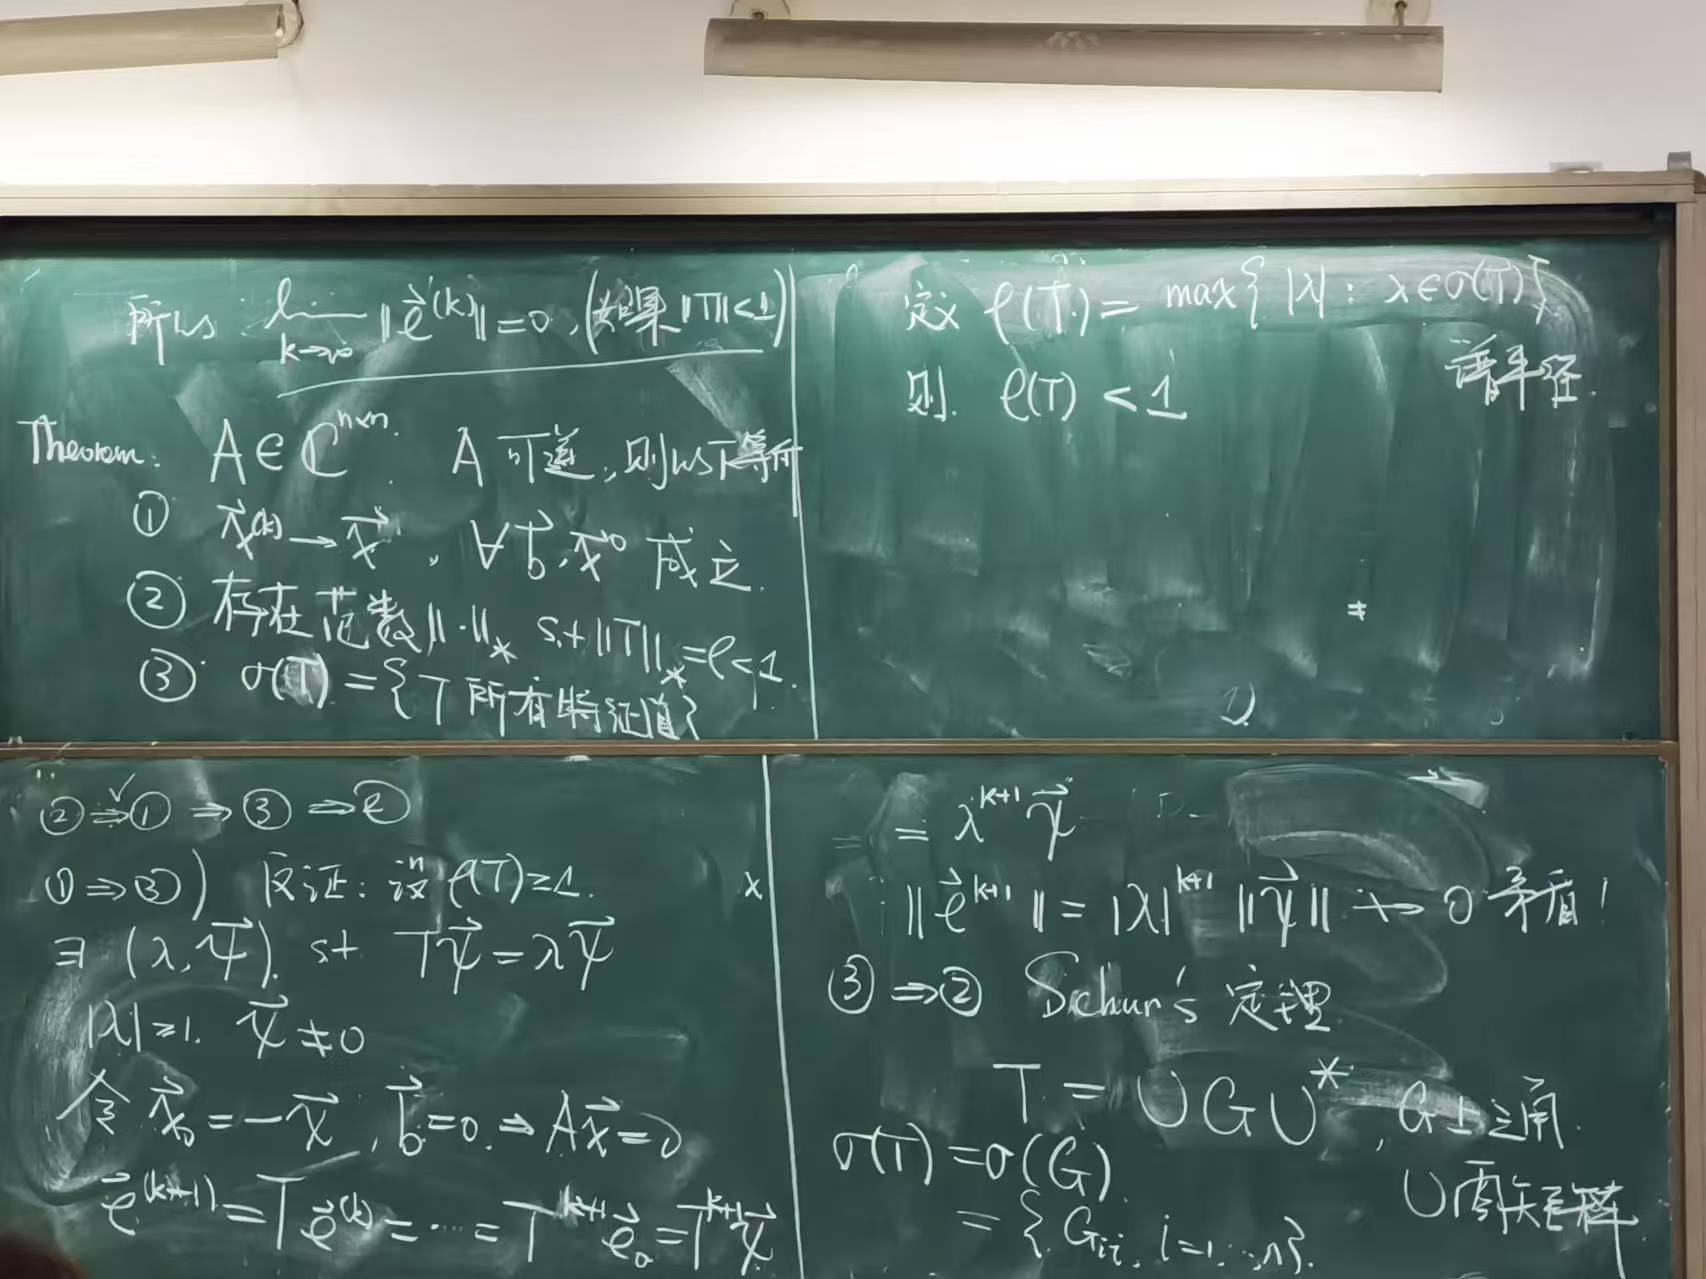 所以 lim_{k→∞} ‖e⃗^{(k)}‖=0, (如果 ‖T‖<1)
Theorem. A∈ℂ^{n×n}. A 可逆, 则以下等价
① x⃗^{(k)}→x⃗, ∀b⃗, x⃗^0 成立.
② 存在范数‖·‖_* s.t ‖T‖_*=ρ<1.
③ σ(T)={T 所有特征值}
定义 ρ(T)=max{|λ|: λ∈σ(T)}
谱半径.
则. ρ(T)<1
②⇒①⇒③⇒②
①⇒③) 反证: 设 ρ(T)≥1.
∃ (λ, ψ⃗). st Tψ⃗=λψ⃗
|λ|≥1. ψ⃗≠0
令 x⃗_0=-ψ⃗, b⃗=0.⇒Ax⃗=0
e⃗^{(k+1)}=Te⃗^{(k)}=⋯=T^{k+1}e⃗_0=T^{k+1}ψ⃗
=λ^{k+1}ψ⃗
‖e⃗^{k+1}‖=|λ|^{k+1}‖ψ⃗‖↛0 矛盾!
③⇒② Schur's 定理
T=UGU^*, G上三角.
U酉矩阵
σ(T)=σ(G).
={G_{ii}, i=1,…,n}.